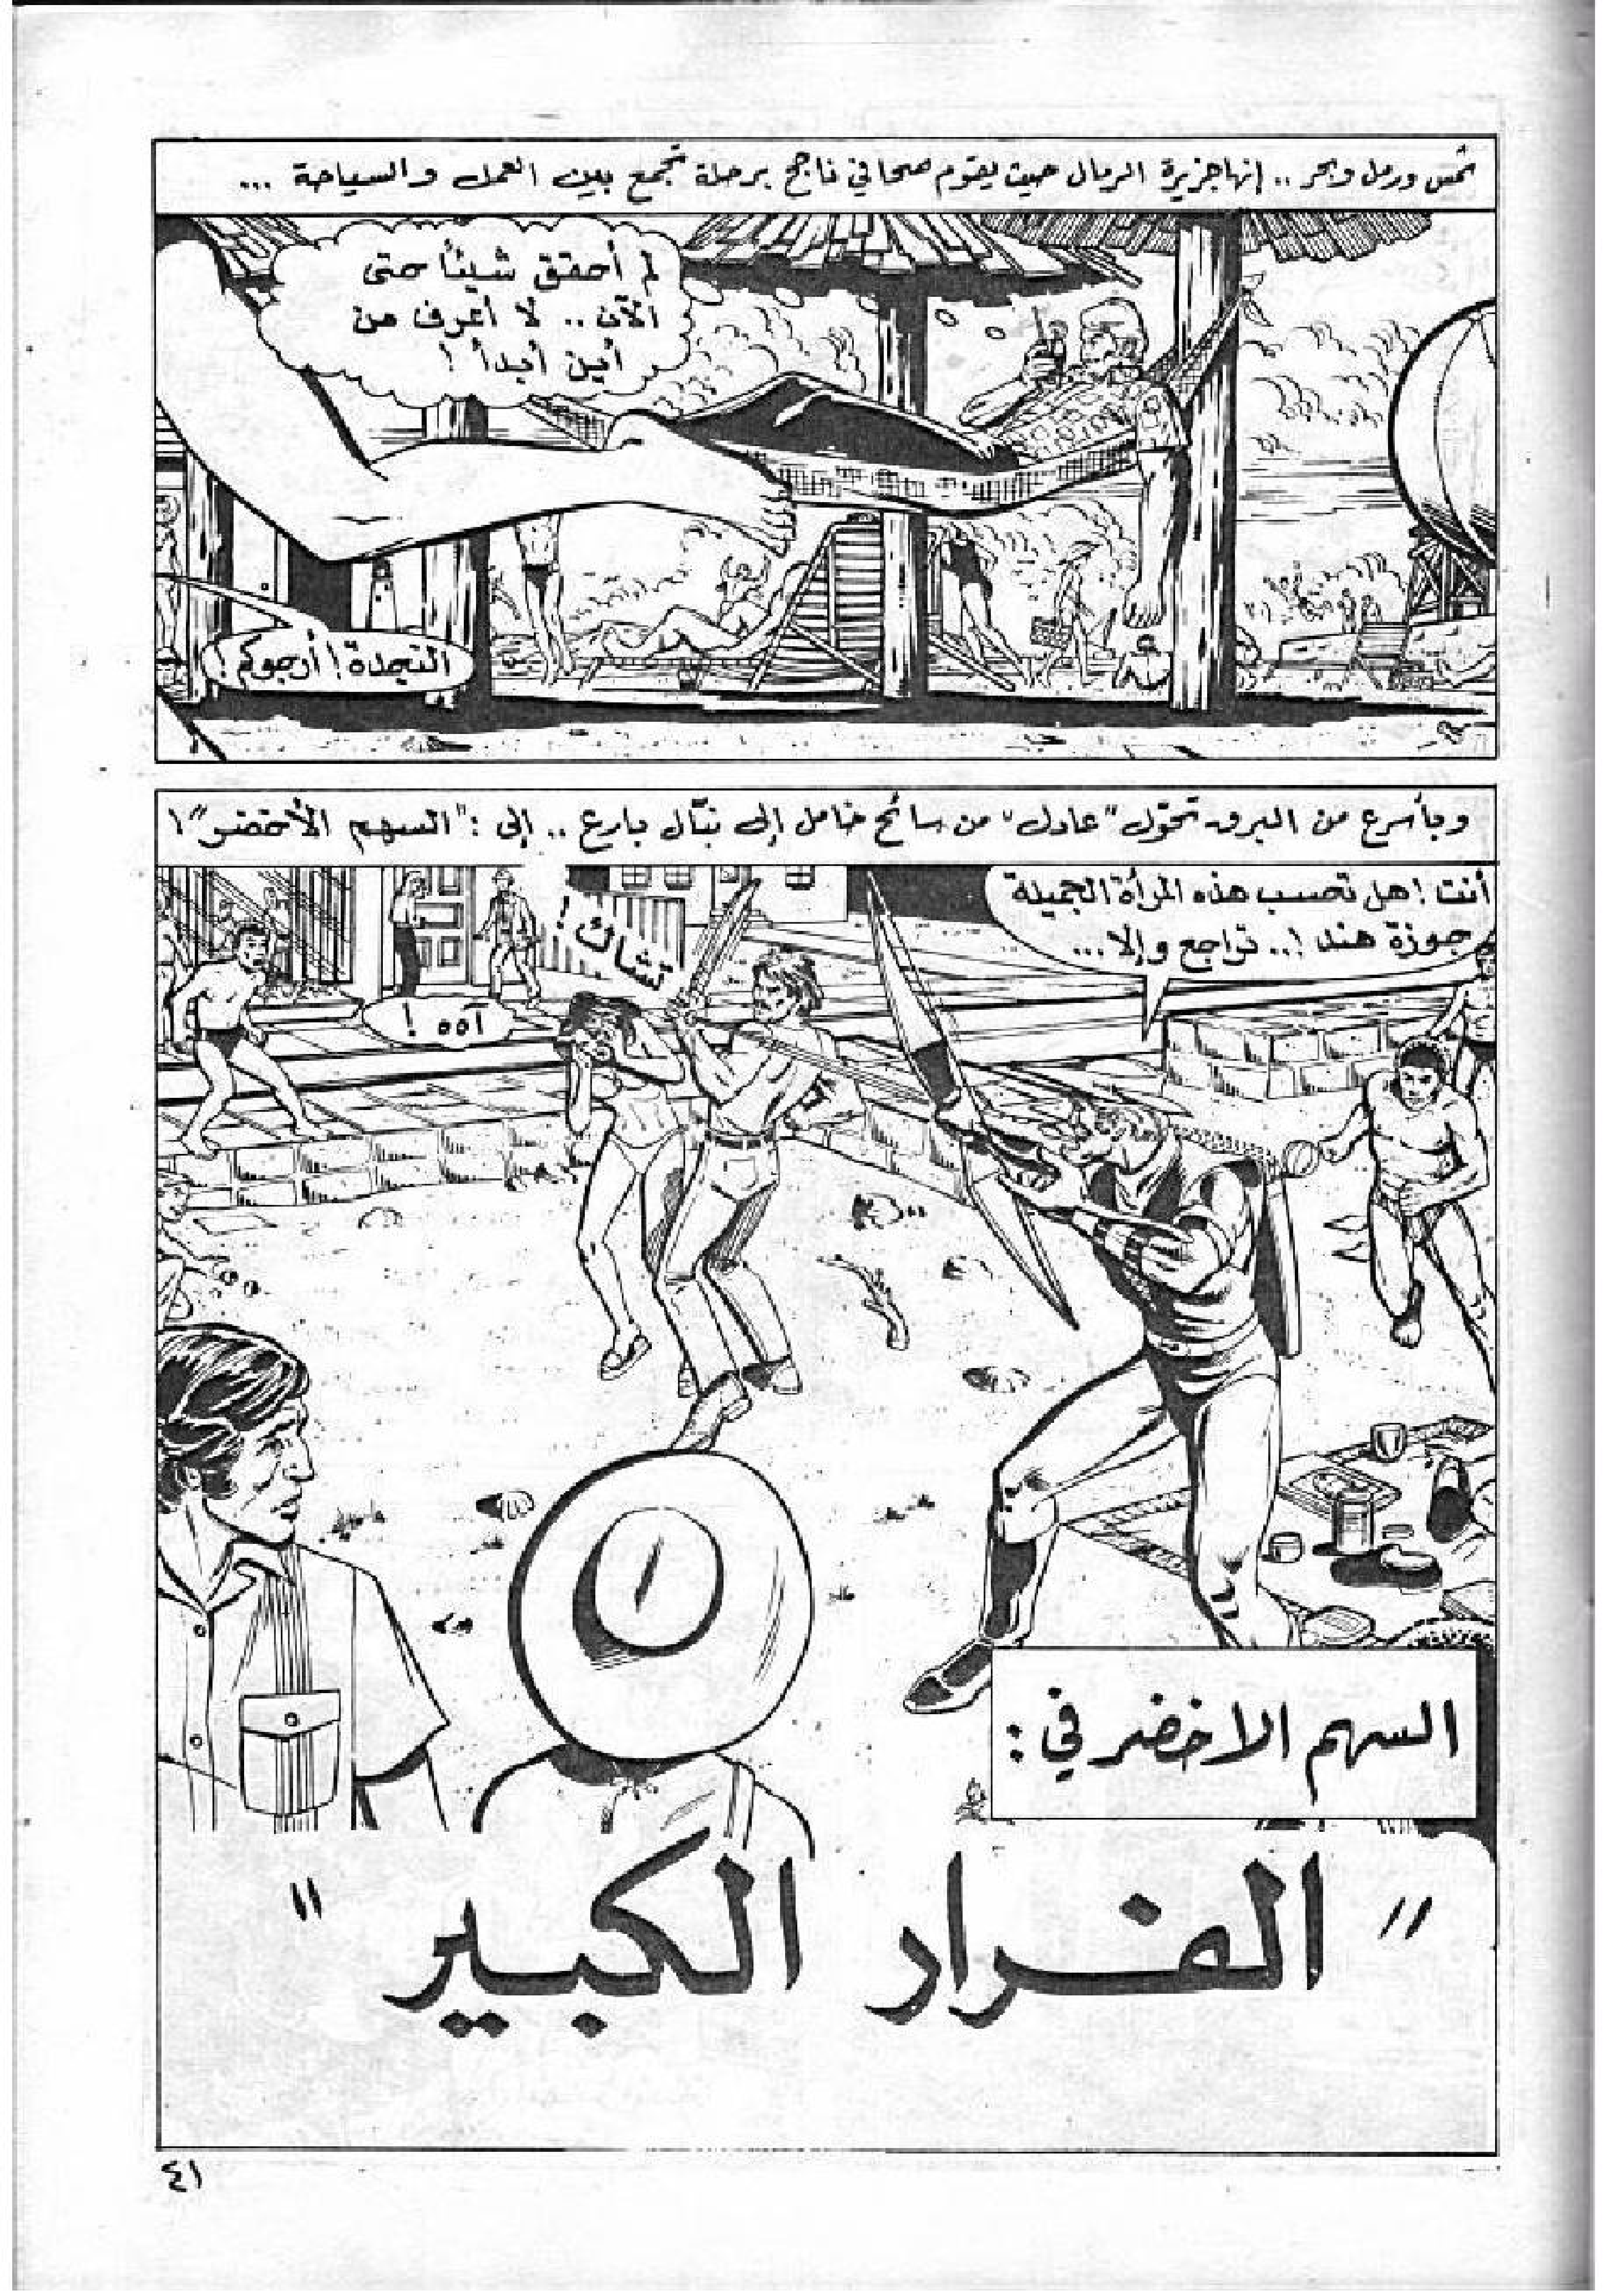 شمس ورمل وبحر .. إنها جزيرة الرمال حيث يقوم صحافي ناجح برحلة تجمع بين العمل والسياحة ...
لم أحقق شيئاً حتى
الآن .. لا أعرف من
أين أبدأ !
النجدة ! أرجوكم !
وبأسرع من البرق تحوّل "عادل" من سائح خامل إلى نبّال بارع .. إلى : "السهم الأخضر" !
أنت ! هل تحسب هذه المرأة الجميلة
جوزة هند !.. تراجع وإلا ...
تشاك !
آه !
السهم الاخضر في :
" الفرار الكبير "
٤١